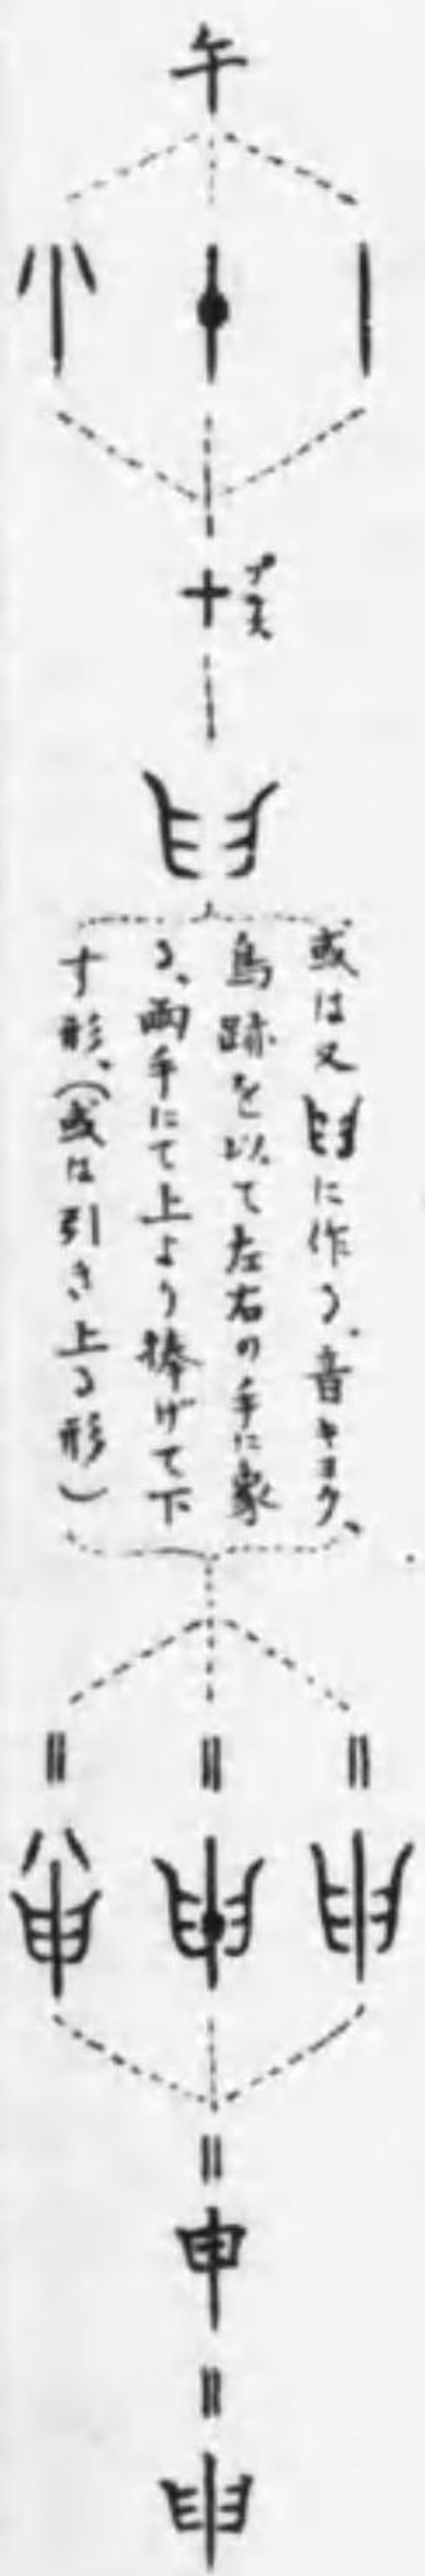 午
十 プラス
𦥑
或は又𦥑に作る、音キヨク、
鳥跡を以て左右の手に象
る、両手にて上より捧げて下
す形、(或は引き上る形)
申